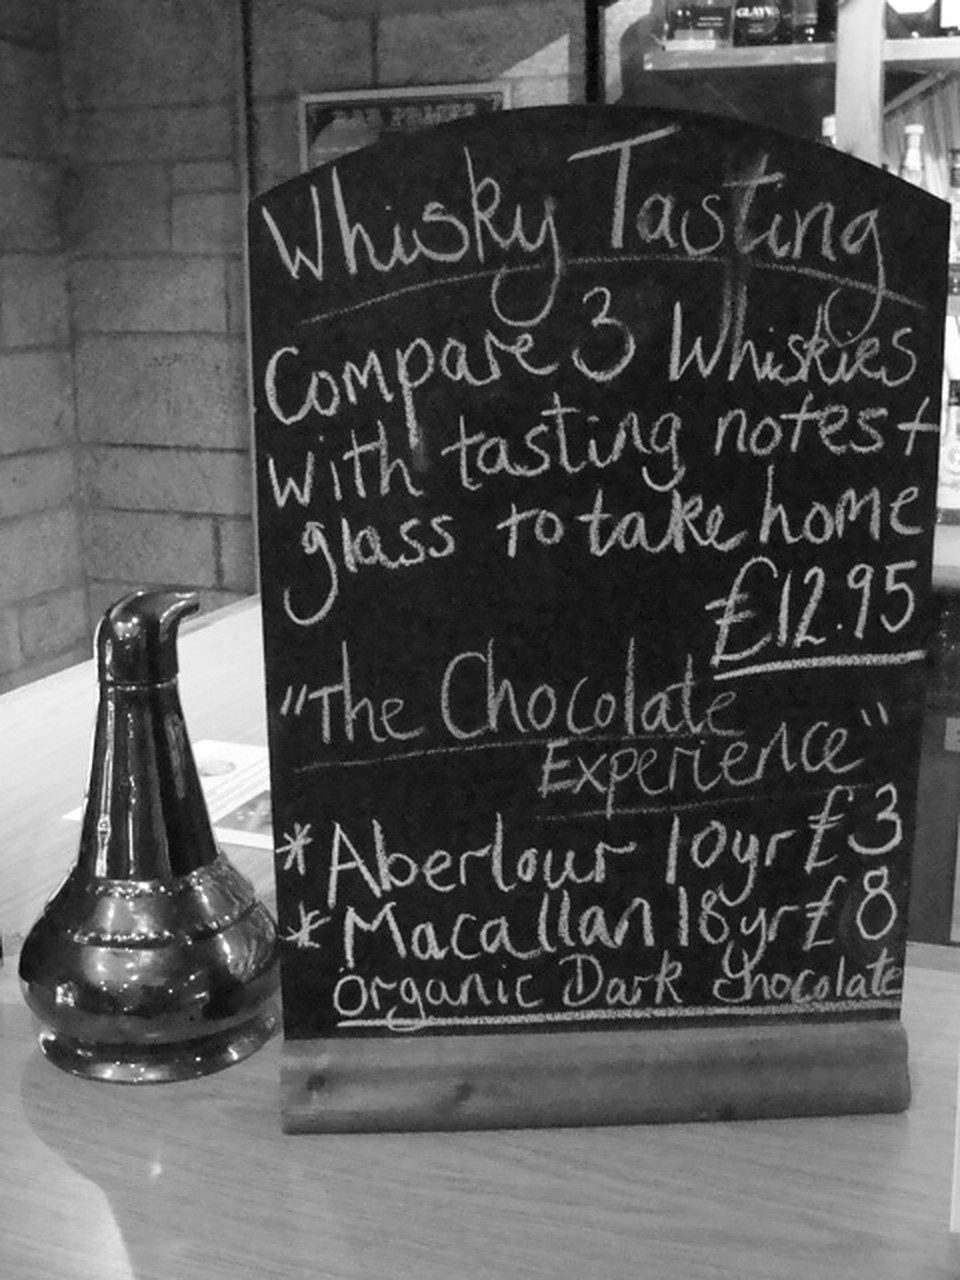 GLAYVA
BAR PRICES
Whisky Tasting
Compare 3 Whiskies
with tasting notes +
glass to take home
£12.95
"The Chocolate
Experience"
* Aberlour 10yr £3
* Macallan 18yr £8
organic Dark Chocolate